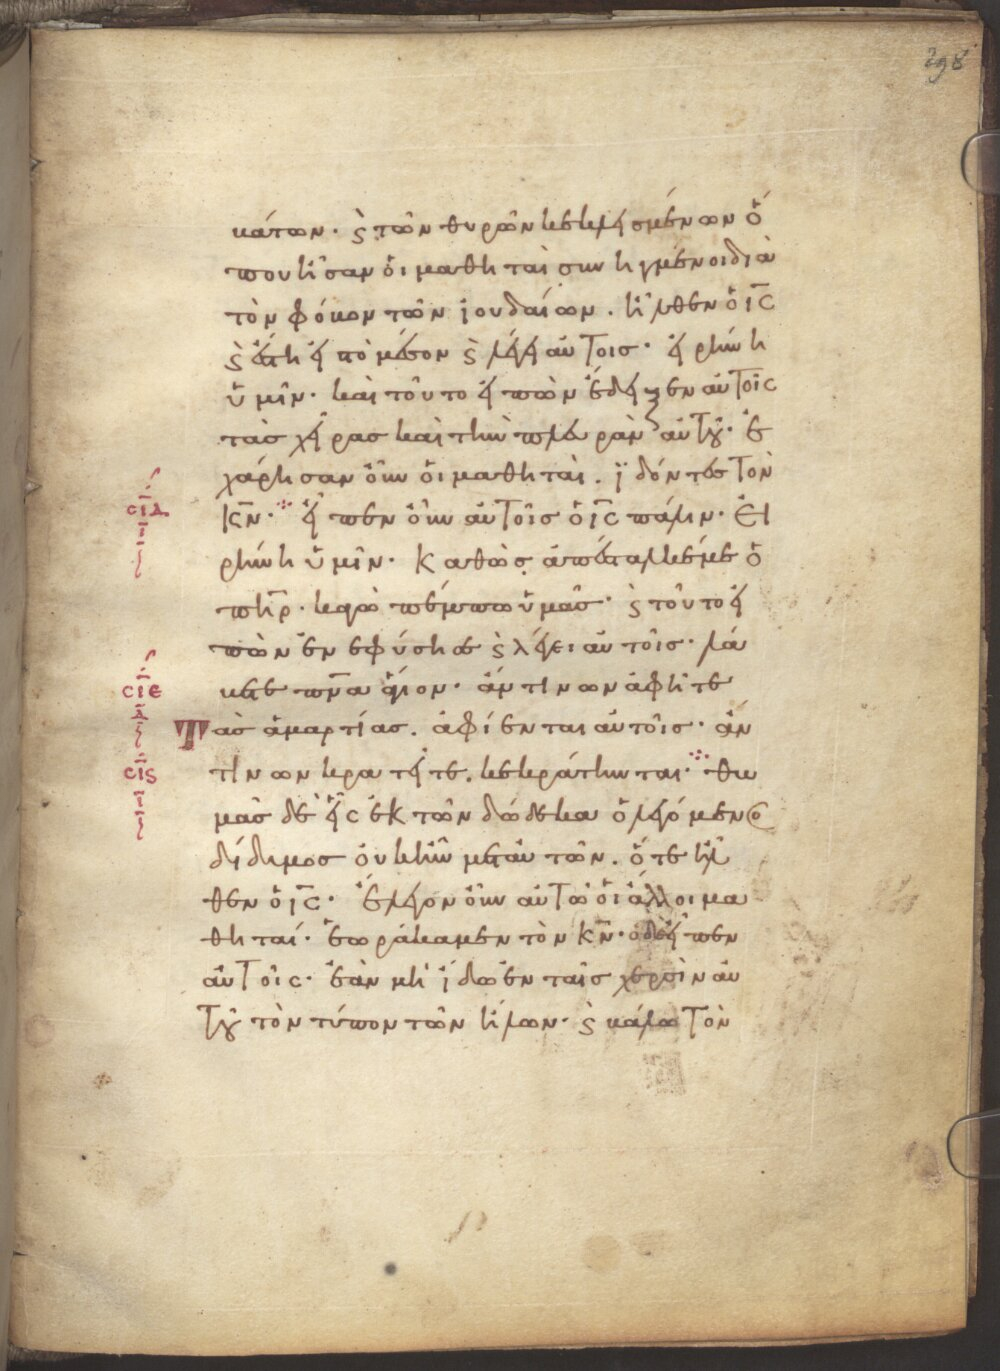 298
κάτων· ϗ τῶν θυρῶν κεκλεισμένων ὅ
που ἦσαν ὁι μαθηταὶ συνηγμένοι διὰ
τὸν φόβον τῶν ἰουδαίων. ἦλθεν ὁ ι̅ς̅
ϗ ἔστη εἰς τὸ μέσον ϗ λέγει αὐτοῖσ· εἰρήνη
ὑμῖν· καὶ τοῦτο εἰπὼν ἔδειξεν αὐτοῖς
τὰσ χεῖρασ καὶ τὴν πλευρὰν αὐτοῦ· ἐ
χάρησαν οὖν ὁι μαθηταὶ. ἰδόντεσ τὸν
κ̅ν̅· εἶπεν οὖν αὐτοῖσ ὁ ι̅ς̅ πάλιν· εἰ
ρήνη ὑμῖν· καθὼς ἀπέσταλκέ με ὁ
π̅η̅ρ̅· κἀγὼ πέμπω ὑμᾶσ· ϗ τοῦτο εἰ
πὼν ἐνεφύσησε ϗ λέγει αὐτοῖσ· λά
βετε π̅ν̅α̅ ἅγιον· ἄν τινων ἀφῆτε
τὰσ ἁμαρτίασ. ἀφίενται αὐτοῖσ· ἄν
τινων κρατῆτε. κεκράτηνται· θω
μᾶσ δὲ εἷς ἐκ τῶν δώδεκα ὁ λεγόμενος
δίδυμοσ ὀυκ ἦν μετ αὐτῶν. ὅτε ἦλ
θεν ὁ ι̅ς̅· ἔλεγον οὖν αὐτῶ ὁι ἄλλοι μα
θηταί· ἑωράκαμεν τὸν κ̅ν̅· ὁ δὲ εἶπεν
αὐτοῖς· ἐὰν μὴ ἴδω ἐν ταῖσ χερσὶν αὐ
τοῦ τὸν τύπον τῶν ἥλων· ϗ βάλω τὸν
σιδ
ι
σιε
σις
ι